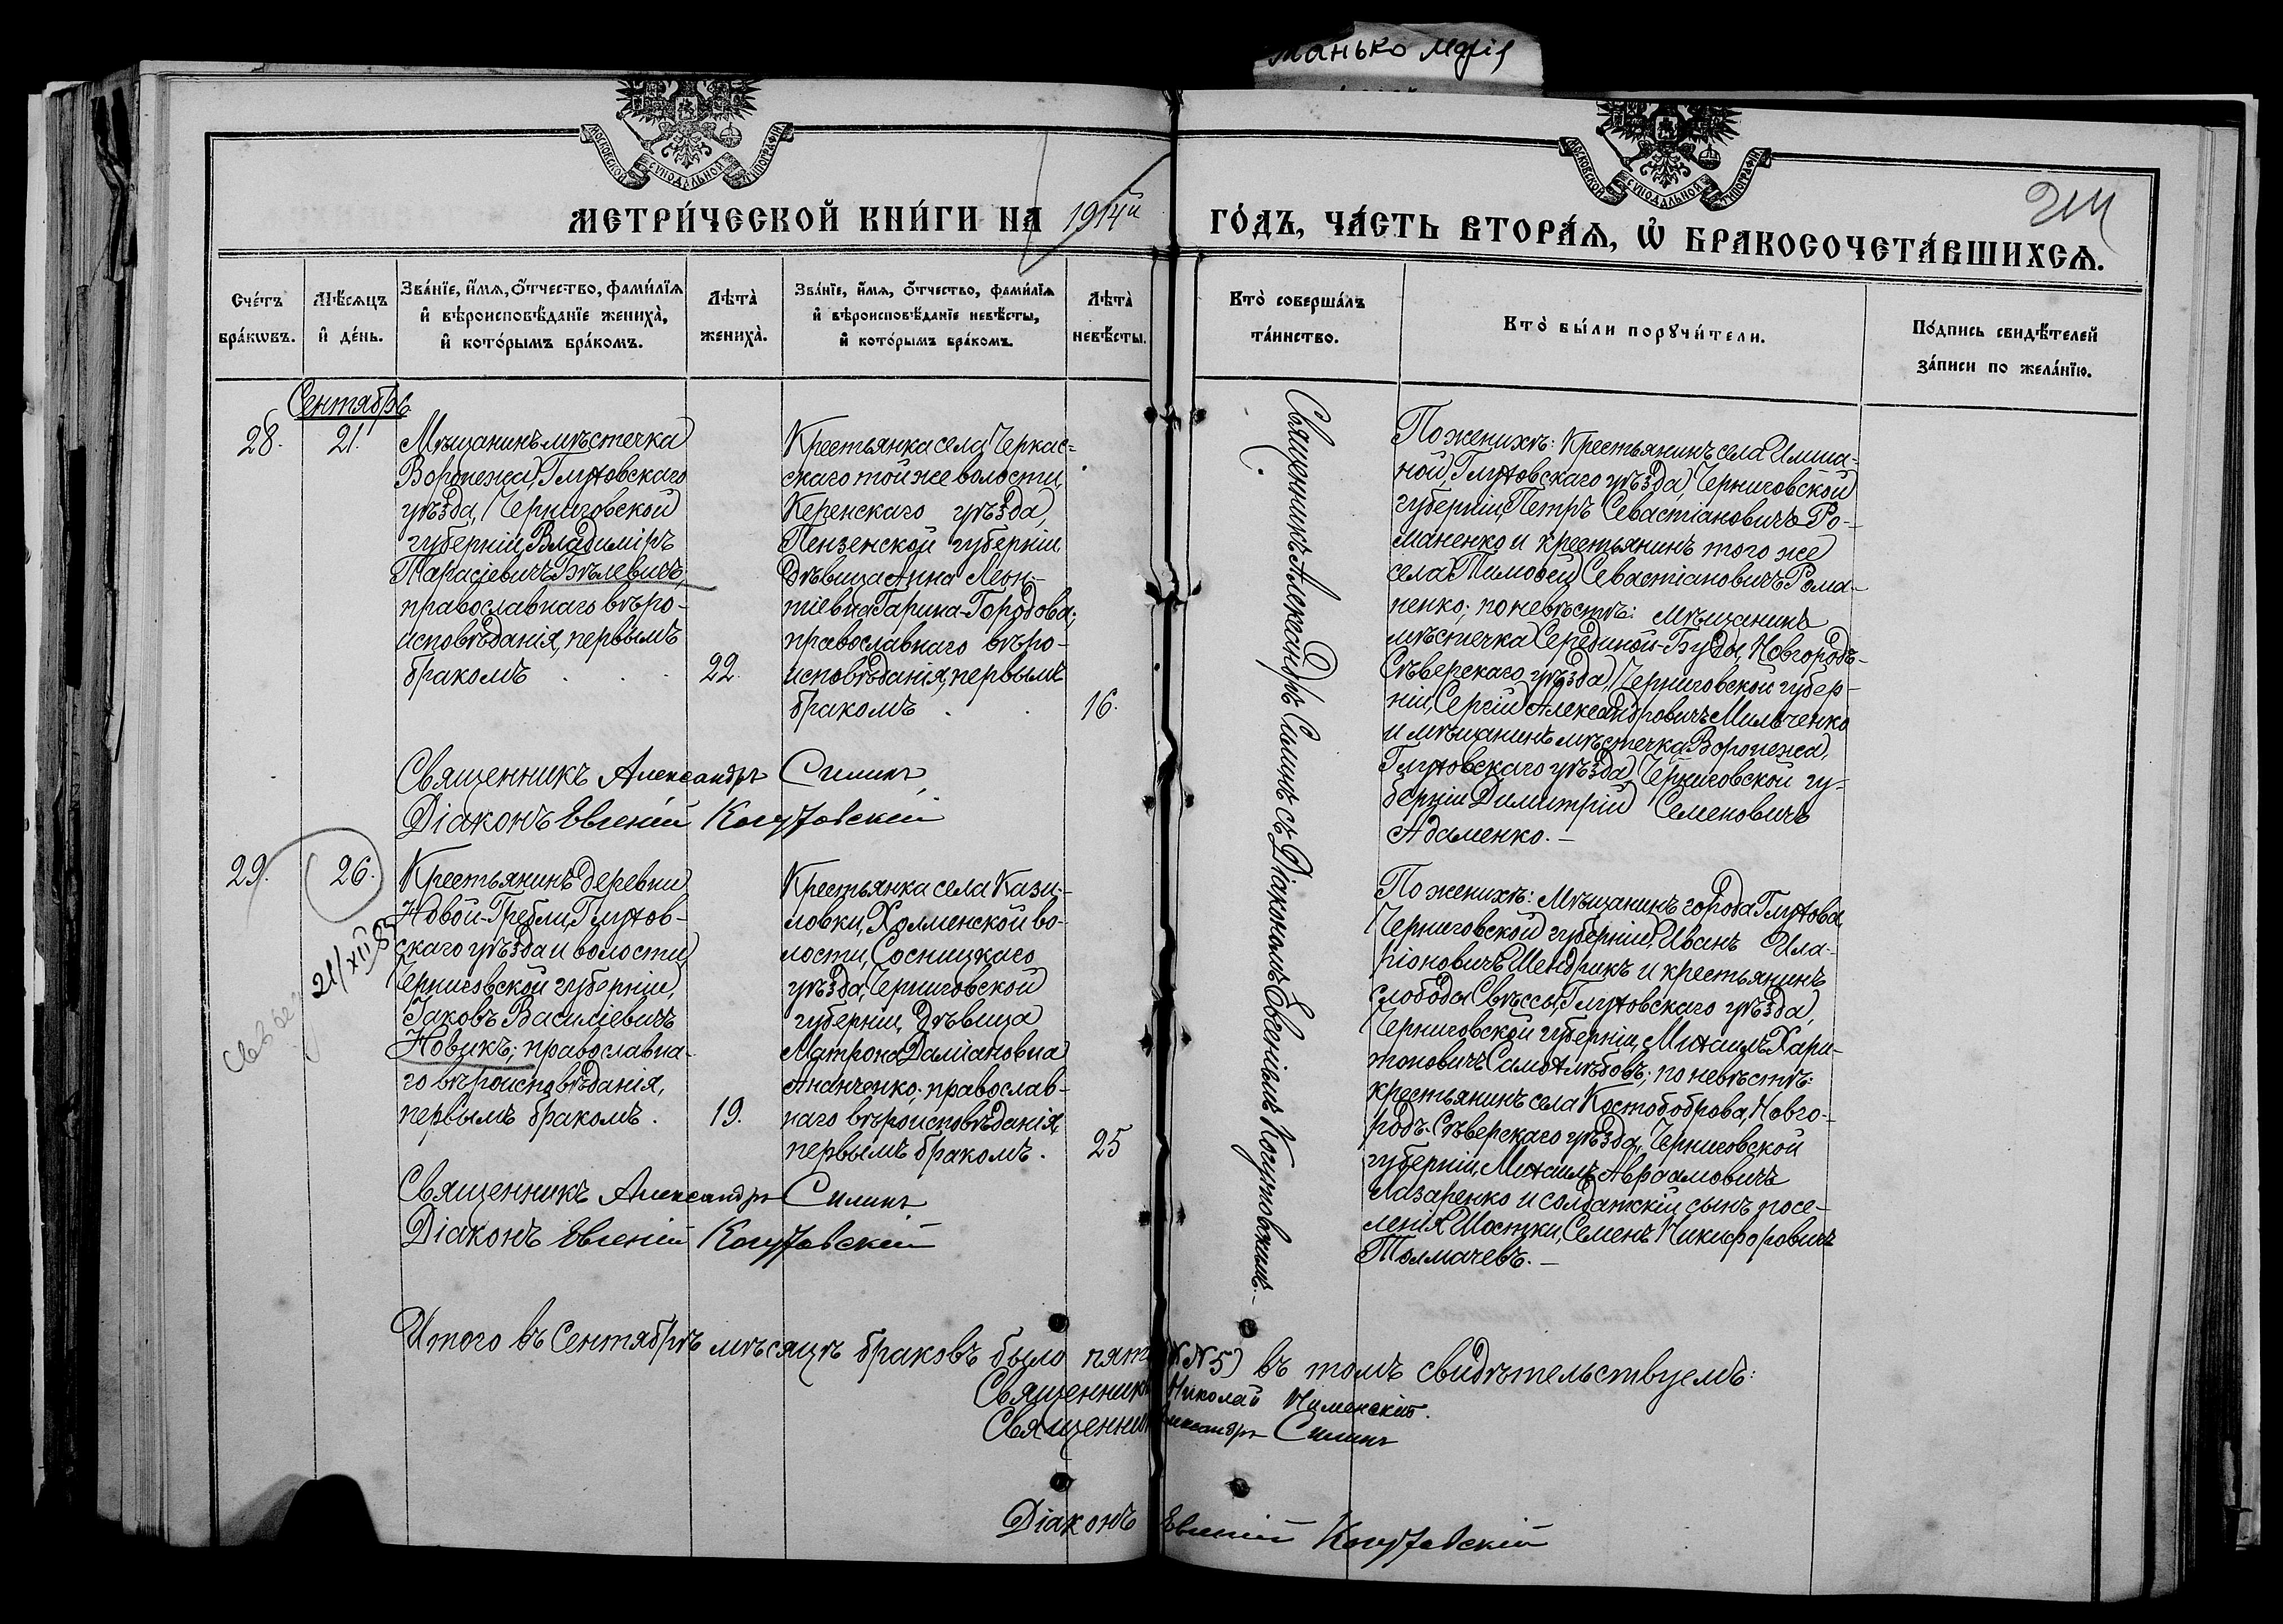 манько
МОСКОВСКОЙ СѴНОДАЛЬНОЙ ТИПОГРАФІИ
МОСКОВСКОЙ СѴНОДАЛЬНОЙ ТИПОГРАФІИ
МЕТРИ́ЧЕСКОЙ КНИ́ГИ НА 1914й ГО́ДЪ, ЧА́СТЬ ВТОРА́Я, Ѡ҆ БРАКОСОЧЕТА́ВШИХСѦ.
Сче́тъ бра́кѡвъ.
Мѣ́сѧцъ и҆ де́нь.
Зва́нїе, и҆́мѧ, ѻ҆́тчество, фами́лїѧ
и҆ вѣроисповѣ́данїе жениха̀,
и҆ кото́рымъ бра́комъ.
Лѣта̀ жениха̀.
Зва́нїе, и҆́мѧ, ѻ҆́тчество, фами́лїѧ
и҆ вѣроисповѣ́данїе невѣ́сты,
и҆ кото́рымъ бра́комъ.
Лѣта̀ невѣ́сты.
Кто̀ соверша́лъ
та́инство.
Кто̀ бы́ли порꙋчи́тели.
По́дпись свидѣ́телей
за́писи по жела́нїю.
Сентябрь
28. 21.
Мѣщанинъ мѣстечка
Воронежа, Глуховскаго
уѣзда, Черниговской
губерніи, Владиміръ
Тарасіевичъ Бѣлевичъ,
православнаго вѣро-
исповѣданія, первымъ
бракомъ . . . 22.
Крестьянка села Черкас-
скаго той же волости,
Керенскаго уѣзда,
Пензенской губерніи,
дѣвица Анна Леон-
тіевна Гарина-Городова;
православнаго вѣро-
исповѣданія, первымъ
бракомъ . . 16.
Священникъ Александръ Силинъ съ Діакономъ Евгеніемъ Когутовскимъ.-
По женихѣ: крестьянинъ села Имша-
ной, Глуховскаго уѣзда, Черниговской
губерніи, Петръ Севастіановичъ Ро-
маненко и крестьянинъ того же
села Тимоѳей Севастіановичъ Рома-
ненко; по невѣстѣ: мѣщанинъ
мѣстечка Середіной-Буды, Новгородъ-
Сѣверскаго уѣзда, Черниговской губер-
ніи, Сергій Александровичъ Мильченко
и мѣщанинъ мѣстечка Воронежа,
Глуховскаго уѣзда, Черниговской гу-
берніи Димитрій Семеновичъ
Адаменко.-
Священникъ Александръ Силинъ
Діаконъ Евгеній Когутовскій
29. 26.
21/XII 83
Крестьянинъ деревни
Новой-Гребли, Глухов-
скаго уѣзда и волости,
Черниговской губерніи,
Іаковъ Василіевичъ
Новикъ; православна-
го вѣроисповѣданія,
первымъ бракомъ . 19.
Крестьянка села Кази-
ловки, Холменской во-
лости, Сосницкаго
уѣзда, Черниговской
губерніи, дѣвица
Матрона Даміановна
Ананченко; православ-
наго вѣроисповѣданія,
первымъ бракомъ . 25
По женихѣ: Мѣщанинъ города Глухова,
Черниговской губерніи, Иванъ Ила-
ріоновичъ Шендрикъ и крестьянинъ
слободы Свѣссы, Глуховскаго уѣзда,
Черниговской губерніи, Михаилъ Хари-
тоновичъ Самохлѣбовъ; по невѣстѣ:
крестьянинъ села Костобоброва, Новго-
родъ-Сѣверскаго уѣзда, Черниговской
губерніи, Михаилъ Авраамовичъ
Лазаренко и солдатскій сынъ посе-
ленія Шостки, Семенъ Никифоровичъ
Толмачевъ.-
Священникъ Александръ Силинъ
Діаконъ Евгеній Когутовскій
Итого въ Сентябрѣ мѣсяцѣ браковъ было пят (№№5) въ томъ свидѣтельствуемъ:
Священникъ Николай
Священник Александръ Силинъ
Діаконъ Евгеній Когутовскій